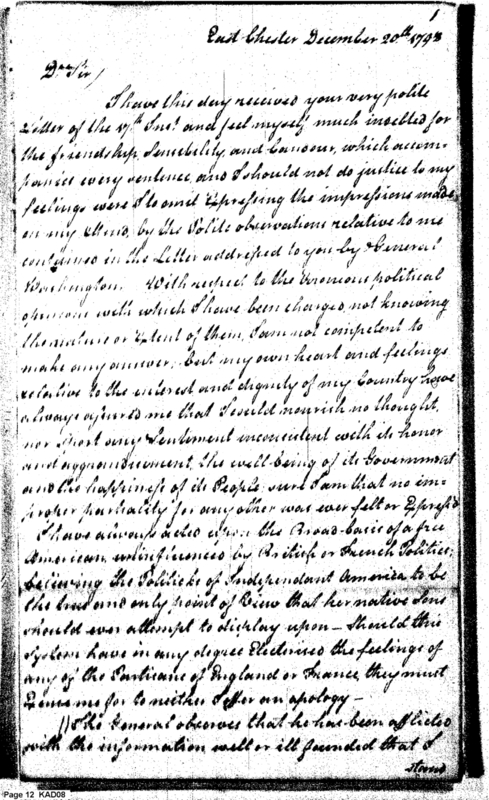 1
East Chester December 20th 1798
Dr Sir)
I have this day received your very polite
Letter of the 17th Inst and feel myself much indebted for
the friendship, Sensibility, and Candour, which accom-
panies every sentence, and I should not do justice to my
feelings were I to omit Expressing the impressions made
on my Mind, by the Polite observations relative to me
contained in the Letter addressed to you by General
Washington. With respect to the Erroneous political
opinions with which I have been charged, not knowing
the nature or Extent of them, I am not competent to
make any answer, but my own heart and feelings
relative to the interest and dignity of my Country have
always assured me that I could nourish no thought,
nor any Sentiment inconsistent with its honor
and aggrandizement, the well-being of its Government
and the happiness of its People, sure I am that no im-
proper partiality for any other was ever felt or Express'd
I have always acted upon the Broad basis of a free
American, uninfluenced by British or French Politics,
believing the Politicks of Independant America to be
the true and only point of View that her native Sons
should ever attempt to display upon - Should this
System have in any degree Electrised the feelings of
any of the Partizans of England or France, they must
Excuse me for to neither I offer an apology -
The General observes that he has been afflicted
with the information well or ill founded that I
stood
Page 12 KAD08